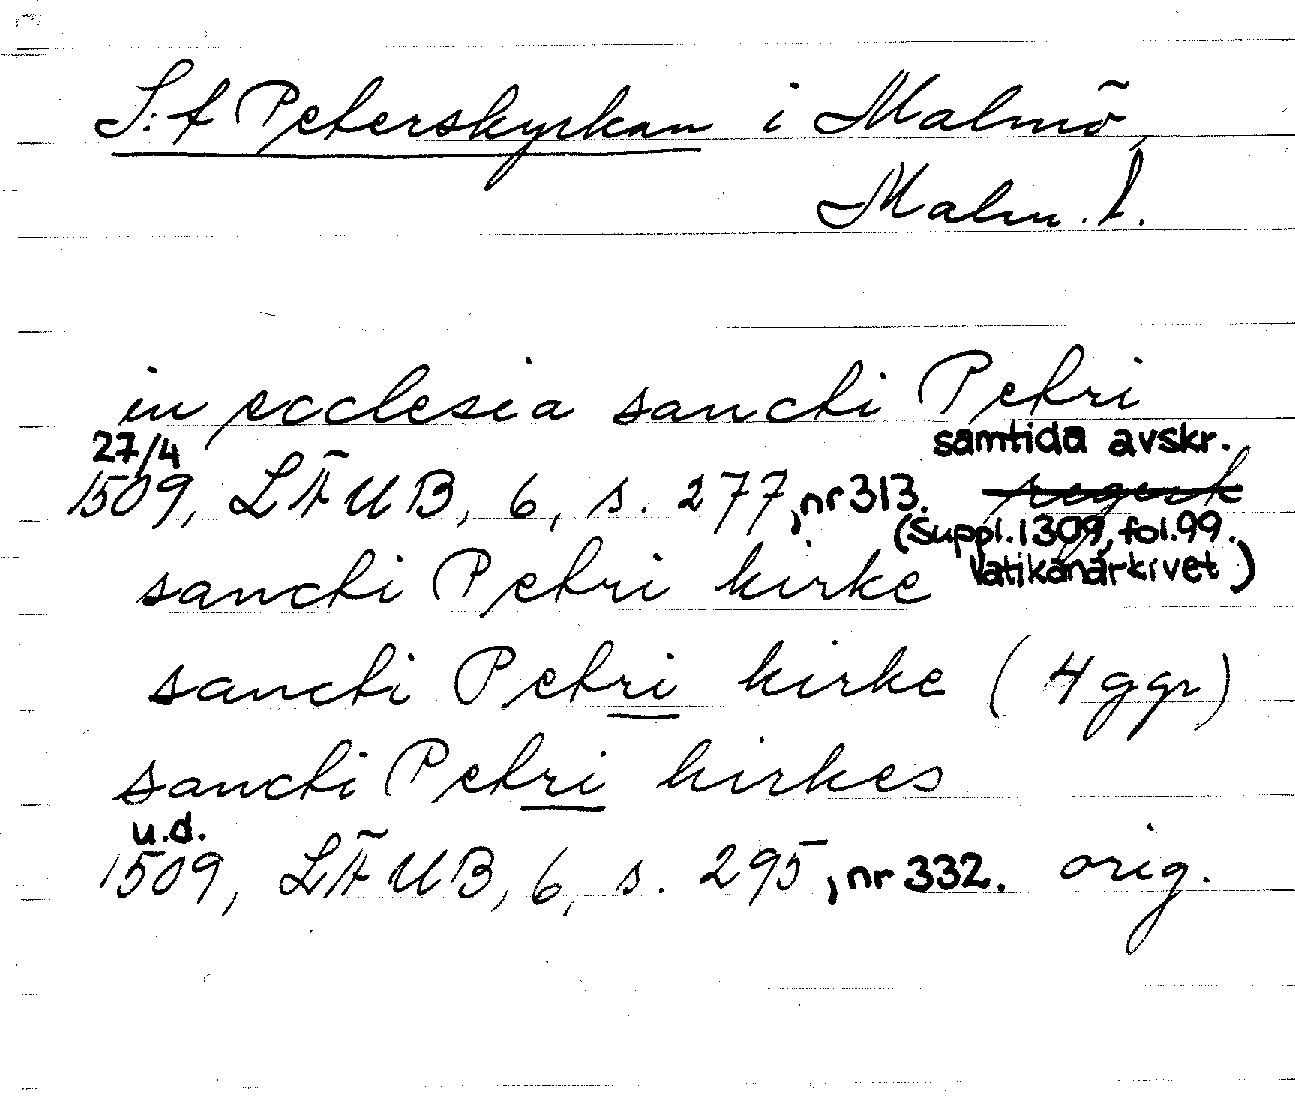 S:t Peterskyrkan i Malmö,
Malm. l.
in ecclesia sancti Petri
27/4 samtida avskr.
1509, LÄUB, 6, s. 277, nr 313.
(Suppl. 1309, fol. 99.
sancti Petri kirke Vatikanarkivet)
sancti Petri kirke (4 ggr)
sancti Petri kirkes
u.d.
1509, LÄUB, 6, s. 295, nr 332. orig.